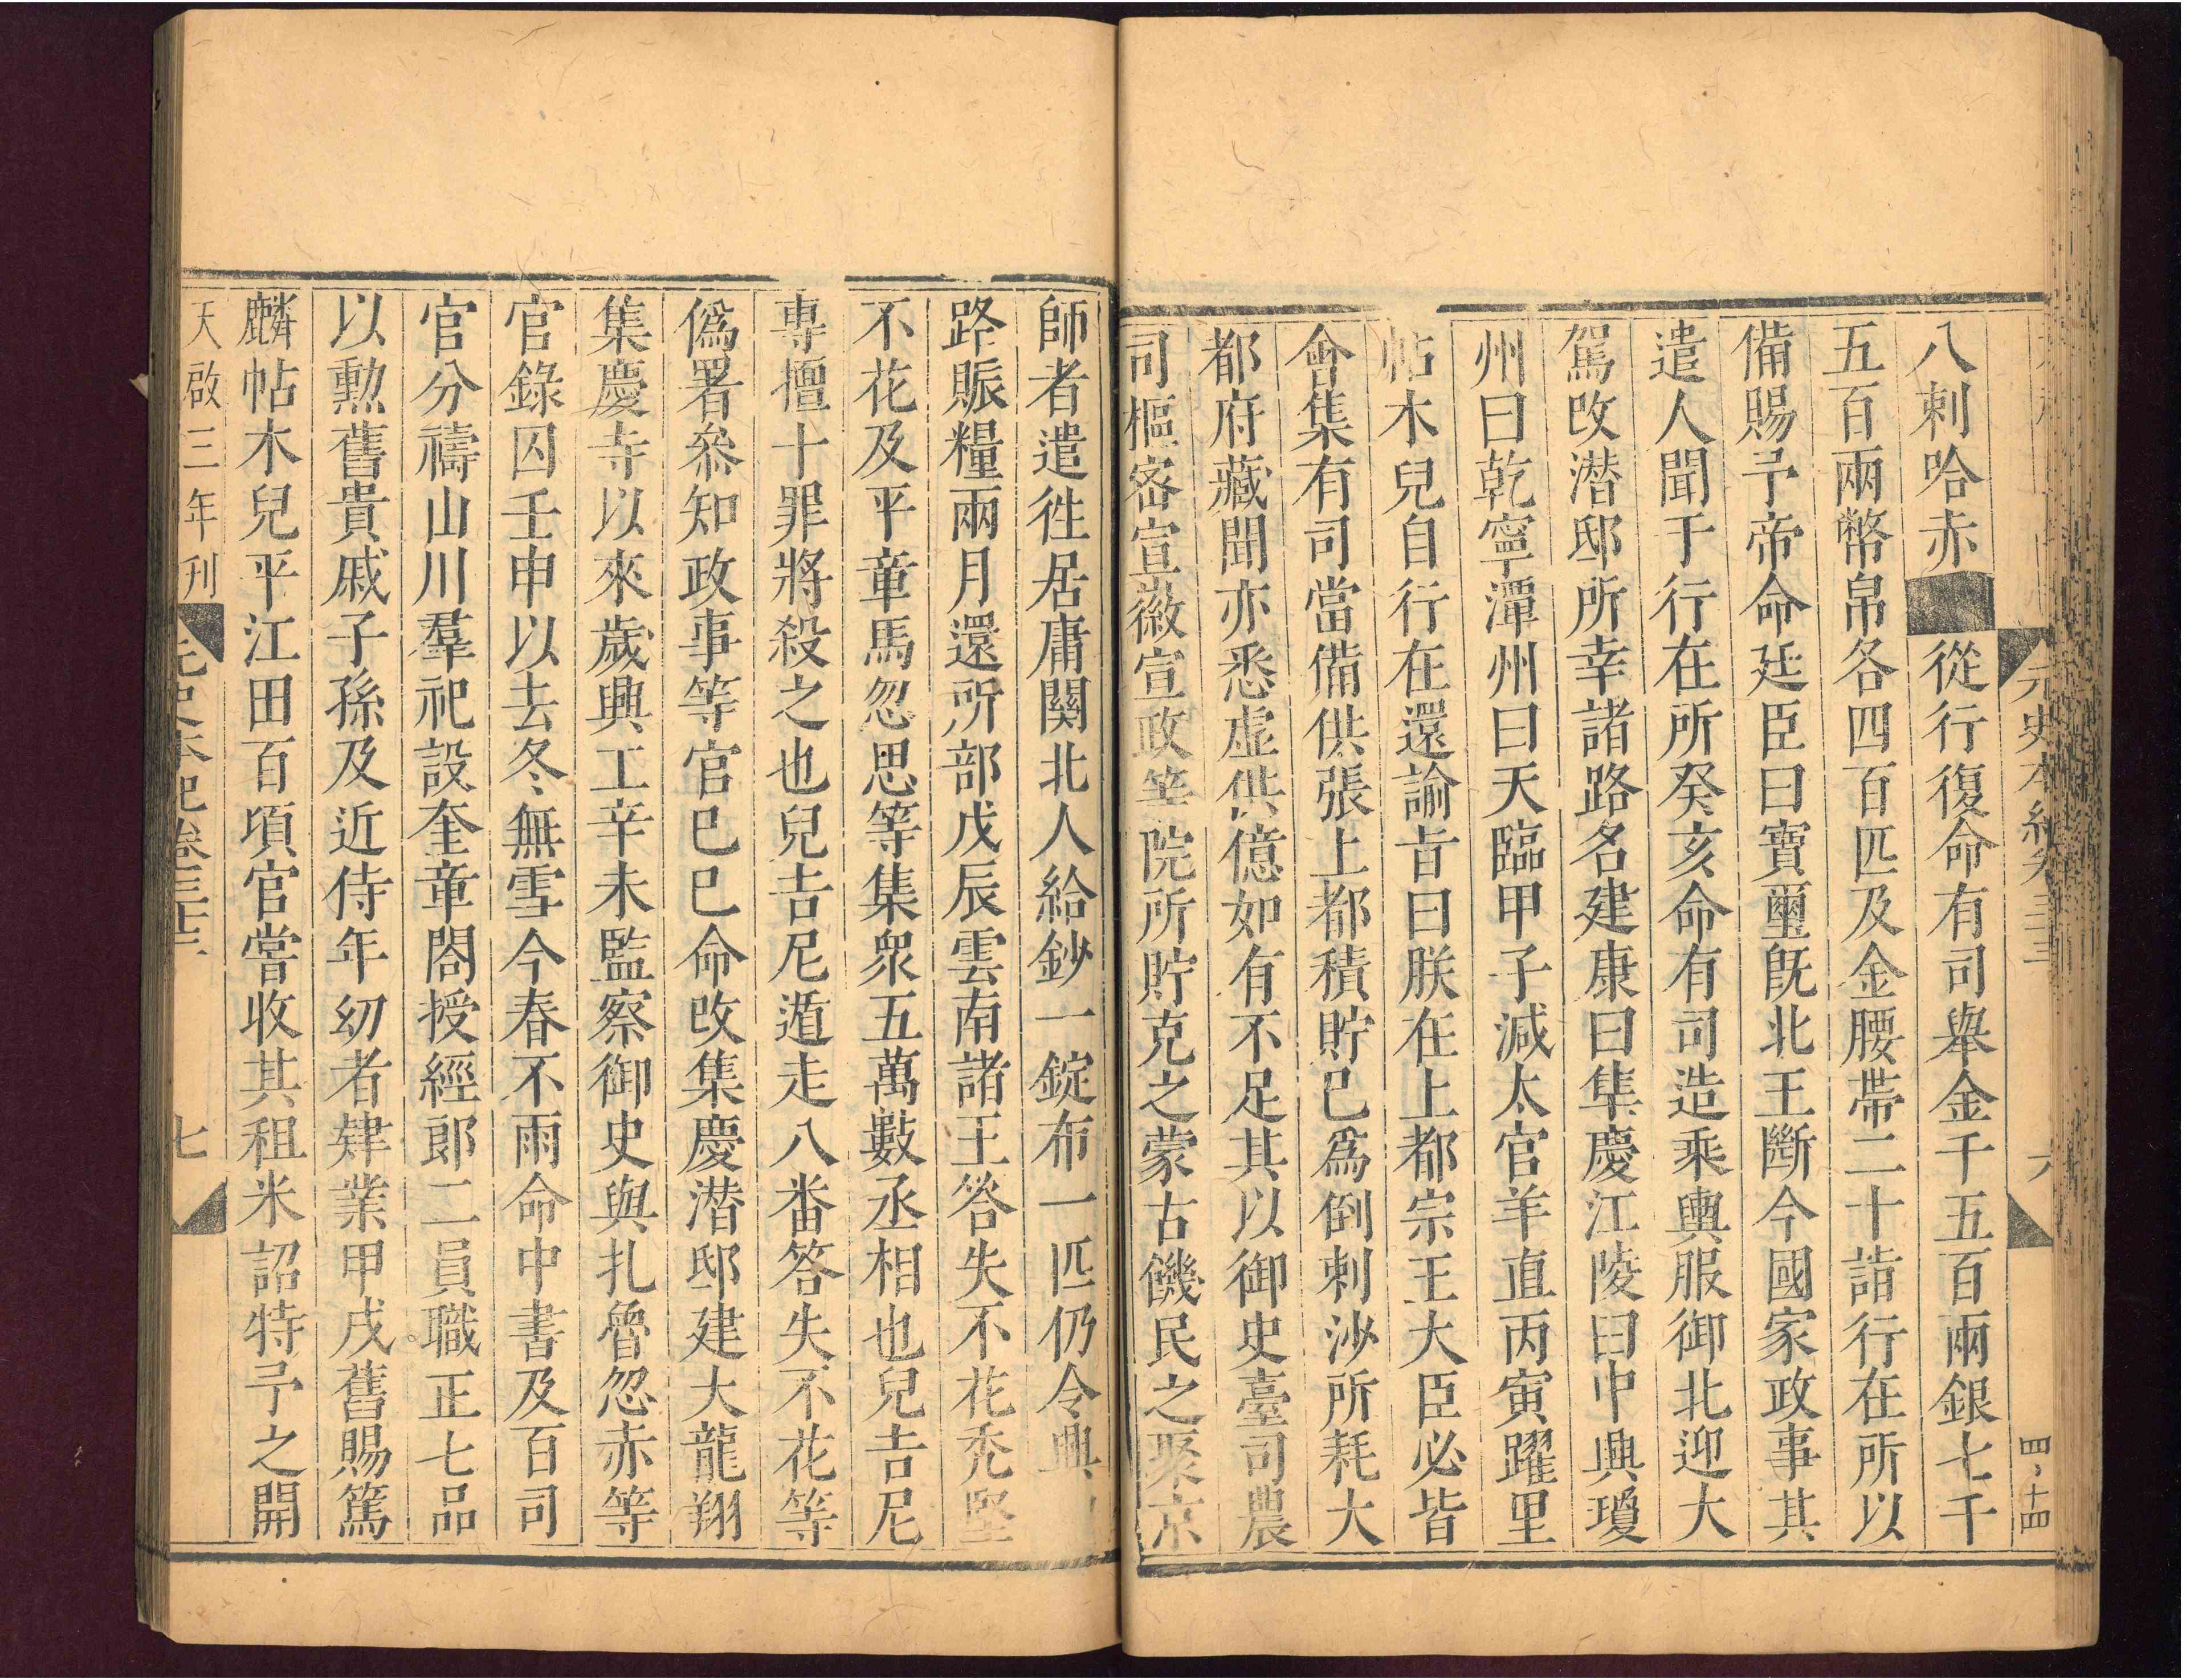 元史本紀卷三十三
六
四、十四
八剌哈赤■從行復命有司舉金千五百兩銀七千
五百兩幣帛各四百匹及金腰帶二十詣行在所以
備賜予帝命廷臣曰寶璽旣北王斷今國家政事其
遣人聞于行在所癸亥命有司造乘輿服御北迎大
駕改潜邸所幸諸路名建康曰集慶江陵曰中興瓊
州曰乾寧潭州曰天臨甲子減太官羊直丙寅躍里
帖木兒自行在還諭旨曰朕在上都宗王大臣必皆
會集有司當備供張上都積貯已爲倒剌沙所耗大
都府藏聞亦悉虛供億如有不足其以御史臺司農
司樞密宣徽宣政等院所貯克之蒙古饑民之聚京
師者遣徃居庸關北人給鈔一錠布一匹仍令興
路賑糧兩月還所部戊辰雲南諸王答失不花禿堅
不花及平章馬忽思等集衆五萬數丞相也兒吉尼
專擅十罪將殺之也兒吉尼遁走八畨答失不花等
僞署叅知政事等官巳巳命改集慶潜邸建大龍翔
集慶寺以來歲興工辛未監察御史與扎魯忽赤等
官錄囚壬申以去冬無雪今春不雨命中書及百司
官分禱山川羣祀設奎章閣授經郎二員職正七品
以勳舊貴戚子孫及近侍年幼者肄業甲戌舊賜篤
麟帖木兒平江田百頃官嘗收其租米詔特予之開
天啟三年刊
元史本紀卷三十三
七